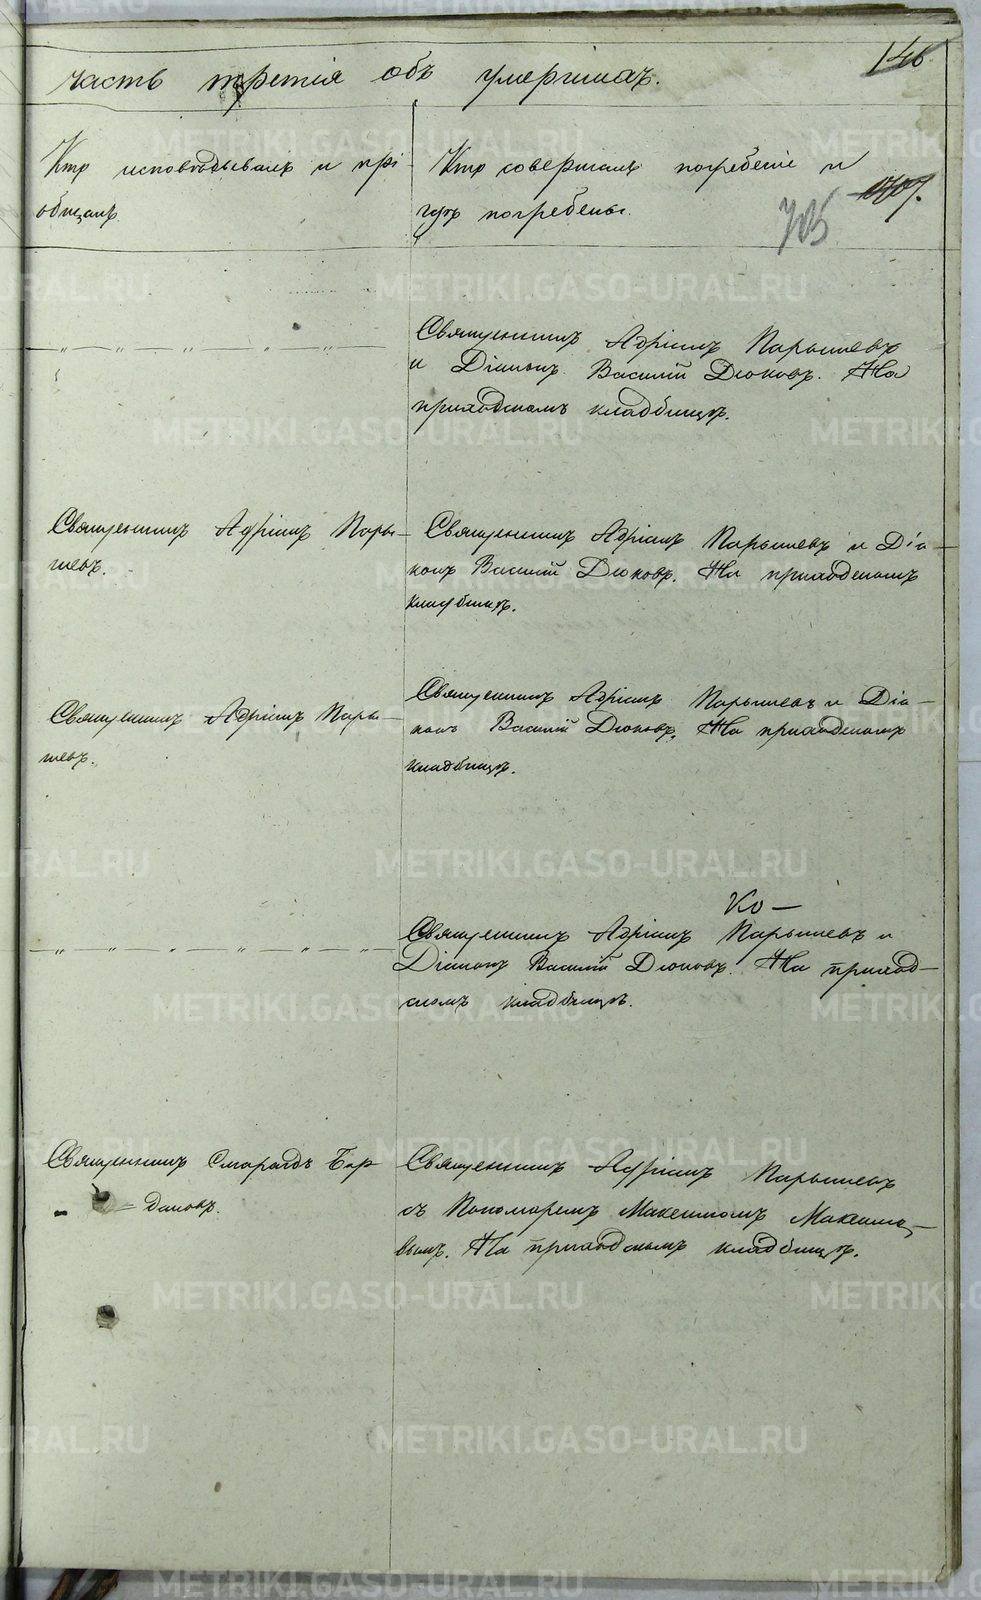 146.
часть третія объ умершихъ.
Кто исповѣдывалъ и прі-
общалъ.
Кто совершалъ погребеніе и
гдѣ погребены.
705
Священникъ Адріанъ Парышевъ
и Діаконъ Василій Дюковъ. На
приходскомъ кладбищѣ.
Священникъ Адріанъ Пары-
шевъ.
Священникъ Адріанъ Парышевъ и Діа-
конъ Василій Дюковъ. На приходскомъ
кладбищѣ.
Священникъ Адріанъ Пары-
шевъ.
Священникъ Адріанъ Парышевъ и Діа-
конъ Василій Дюковъ. На приходскомъ
кладбищѣ.
Ко-
Священникъ Адріанъ Парышевъ и
Діаконъ Василій Дюковъ. На приход-
скомъ кладбищѣ.
Священникъ Смарагдъ
= дановъ.
Священникъ Адріанъ Парышевъ
съ Пономаремъ Максимомъ Максимо-
вымъ. На приходскомъ кладбищѣ.
METRIKI.GASO-URAL.RU